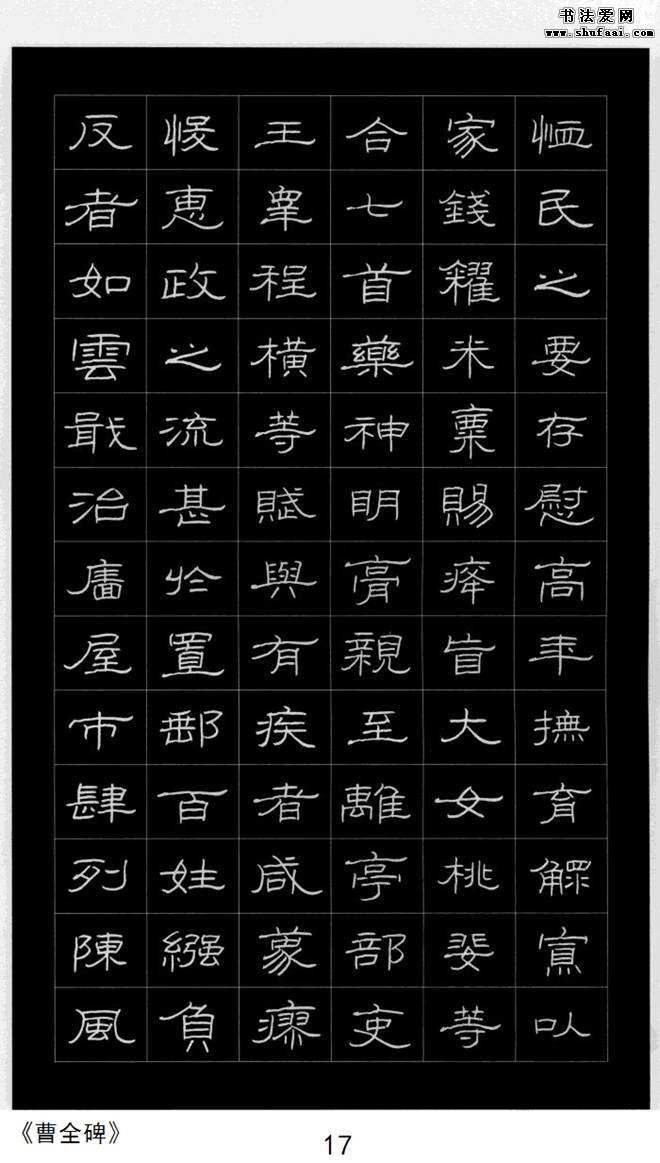 书法爱网
www.shufaai.com
恤民之要存慰高年撫育鰥寡以
家錢糴米粟賜癃盲大女桃婓等
合七首藥神明膏親至離亭部吏
王皐程横等賦與有疾者咸蒙瘳
悛惠政之流甚於置郵百姓繦負
反者如雲戢治廧屋市肆列陳風
《曹全碑》
17